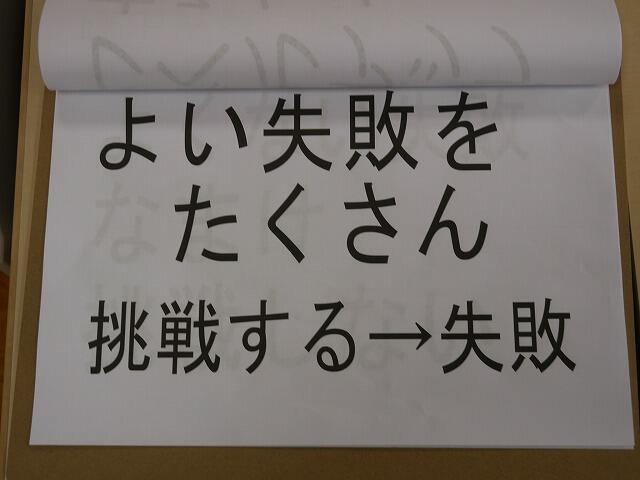 よい失敗を
たくさん
挑戦する→失敗